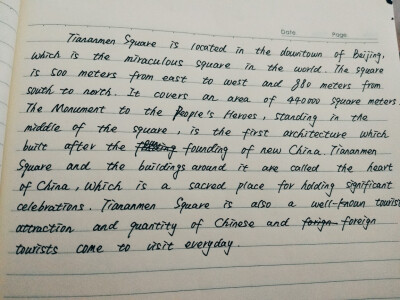 Date Page
Tiananmen Square is located in the downtown of Beijing,
which is the miraculous square in the world. The square
is 500 meters from east to west and 880 meters from
south to north. It covers an area of 440000 square meters.
The Monument to the People's Heroes, standing in the
middle of the square, is the first architecture which
built after the founding of new China. Tiananmen
Square and the buildings around it are called the heart
of China, which is a sacred place for holding significant
celebrations. Tiananmen Square is also a well-known tourist
attraction and quantity of Chinese and forign foreign
tourists come to visit everyday.